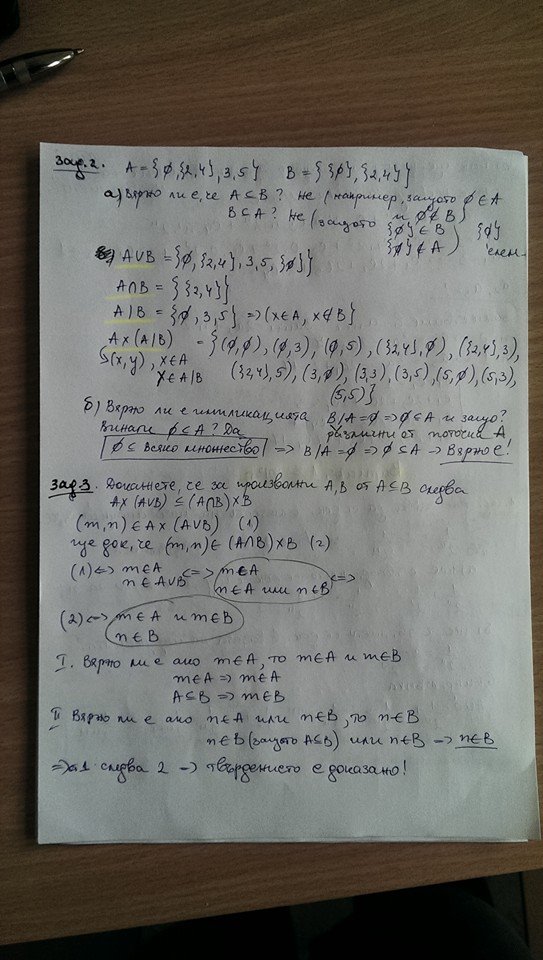 Зад.2. A={∅,{2,4},3,5} B={{∅},{2,4}}
а) Вярно ли е, че A⊆B? Не (например, защото ∅∈A и ∅∉B)
B⊆A? Не (защото {∅}∈B {∅}∉A) {∅}
в) A∪B = {∅,{2,4},3,5,{∅}}
A∩B = {{2,4}}
A|B = {∅,3,5} => (x∈A, x∉B}
Ax(A|B) = {(∅,∅),(∅,3),(∅,5),({2,4},∅),({2,4},3),
{(x,y), x∈A ({2,4},5),(3,∅),(3,3),(3,5),(5,∅),(5,3),
y∈A|B (5,5)}
б) Вярно ли е импликацията B/A=∅ => ∅⊆A и защо?
Винаги ∅⊆A? Да различни от потоска A
∅⊆ всяко множество => B/A=∅ => ∅⊆A -> Вярно е!
Зад.3. Докажете, че за произволни A,B от A⊆B следва
Ax(A∪B) ⊆ (A∩B)xB
(m,n)∈Ax(A∪B) (1)
ще док, че (m,n)∈(A∩B)xB (2)
(1)<=> m∈A <=> m∈A <=>
n∈A∪B n∈A или n∈B
(2)<=> m∈A и m∈B
n∈B
I. Вярно ли е ако m∈A, то m∈A и m∈B
m∈A => m∈A
A⊆B => m∈B
II Вярно ли е ако n∈A или n∈B, то n∈B
n∈B (защото A⊆B) или n∈B -> n∈B
=> от 1 следва 2 -> твърдението е доказано!